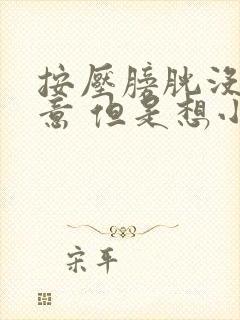 按壓膀胱沒
意 但是想小
宋平